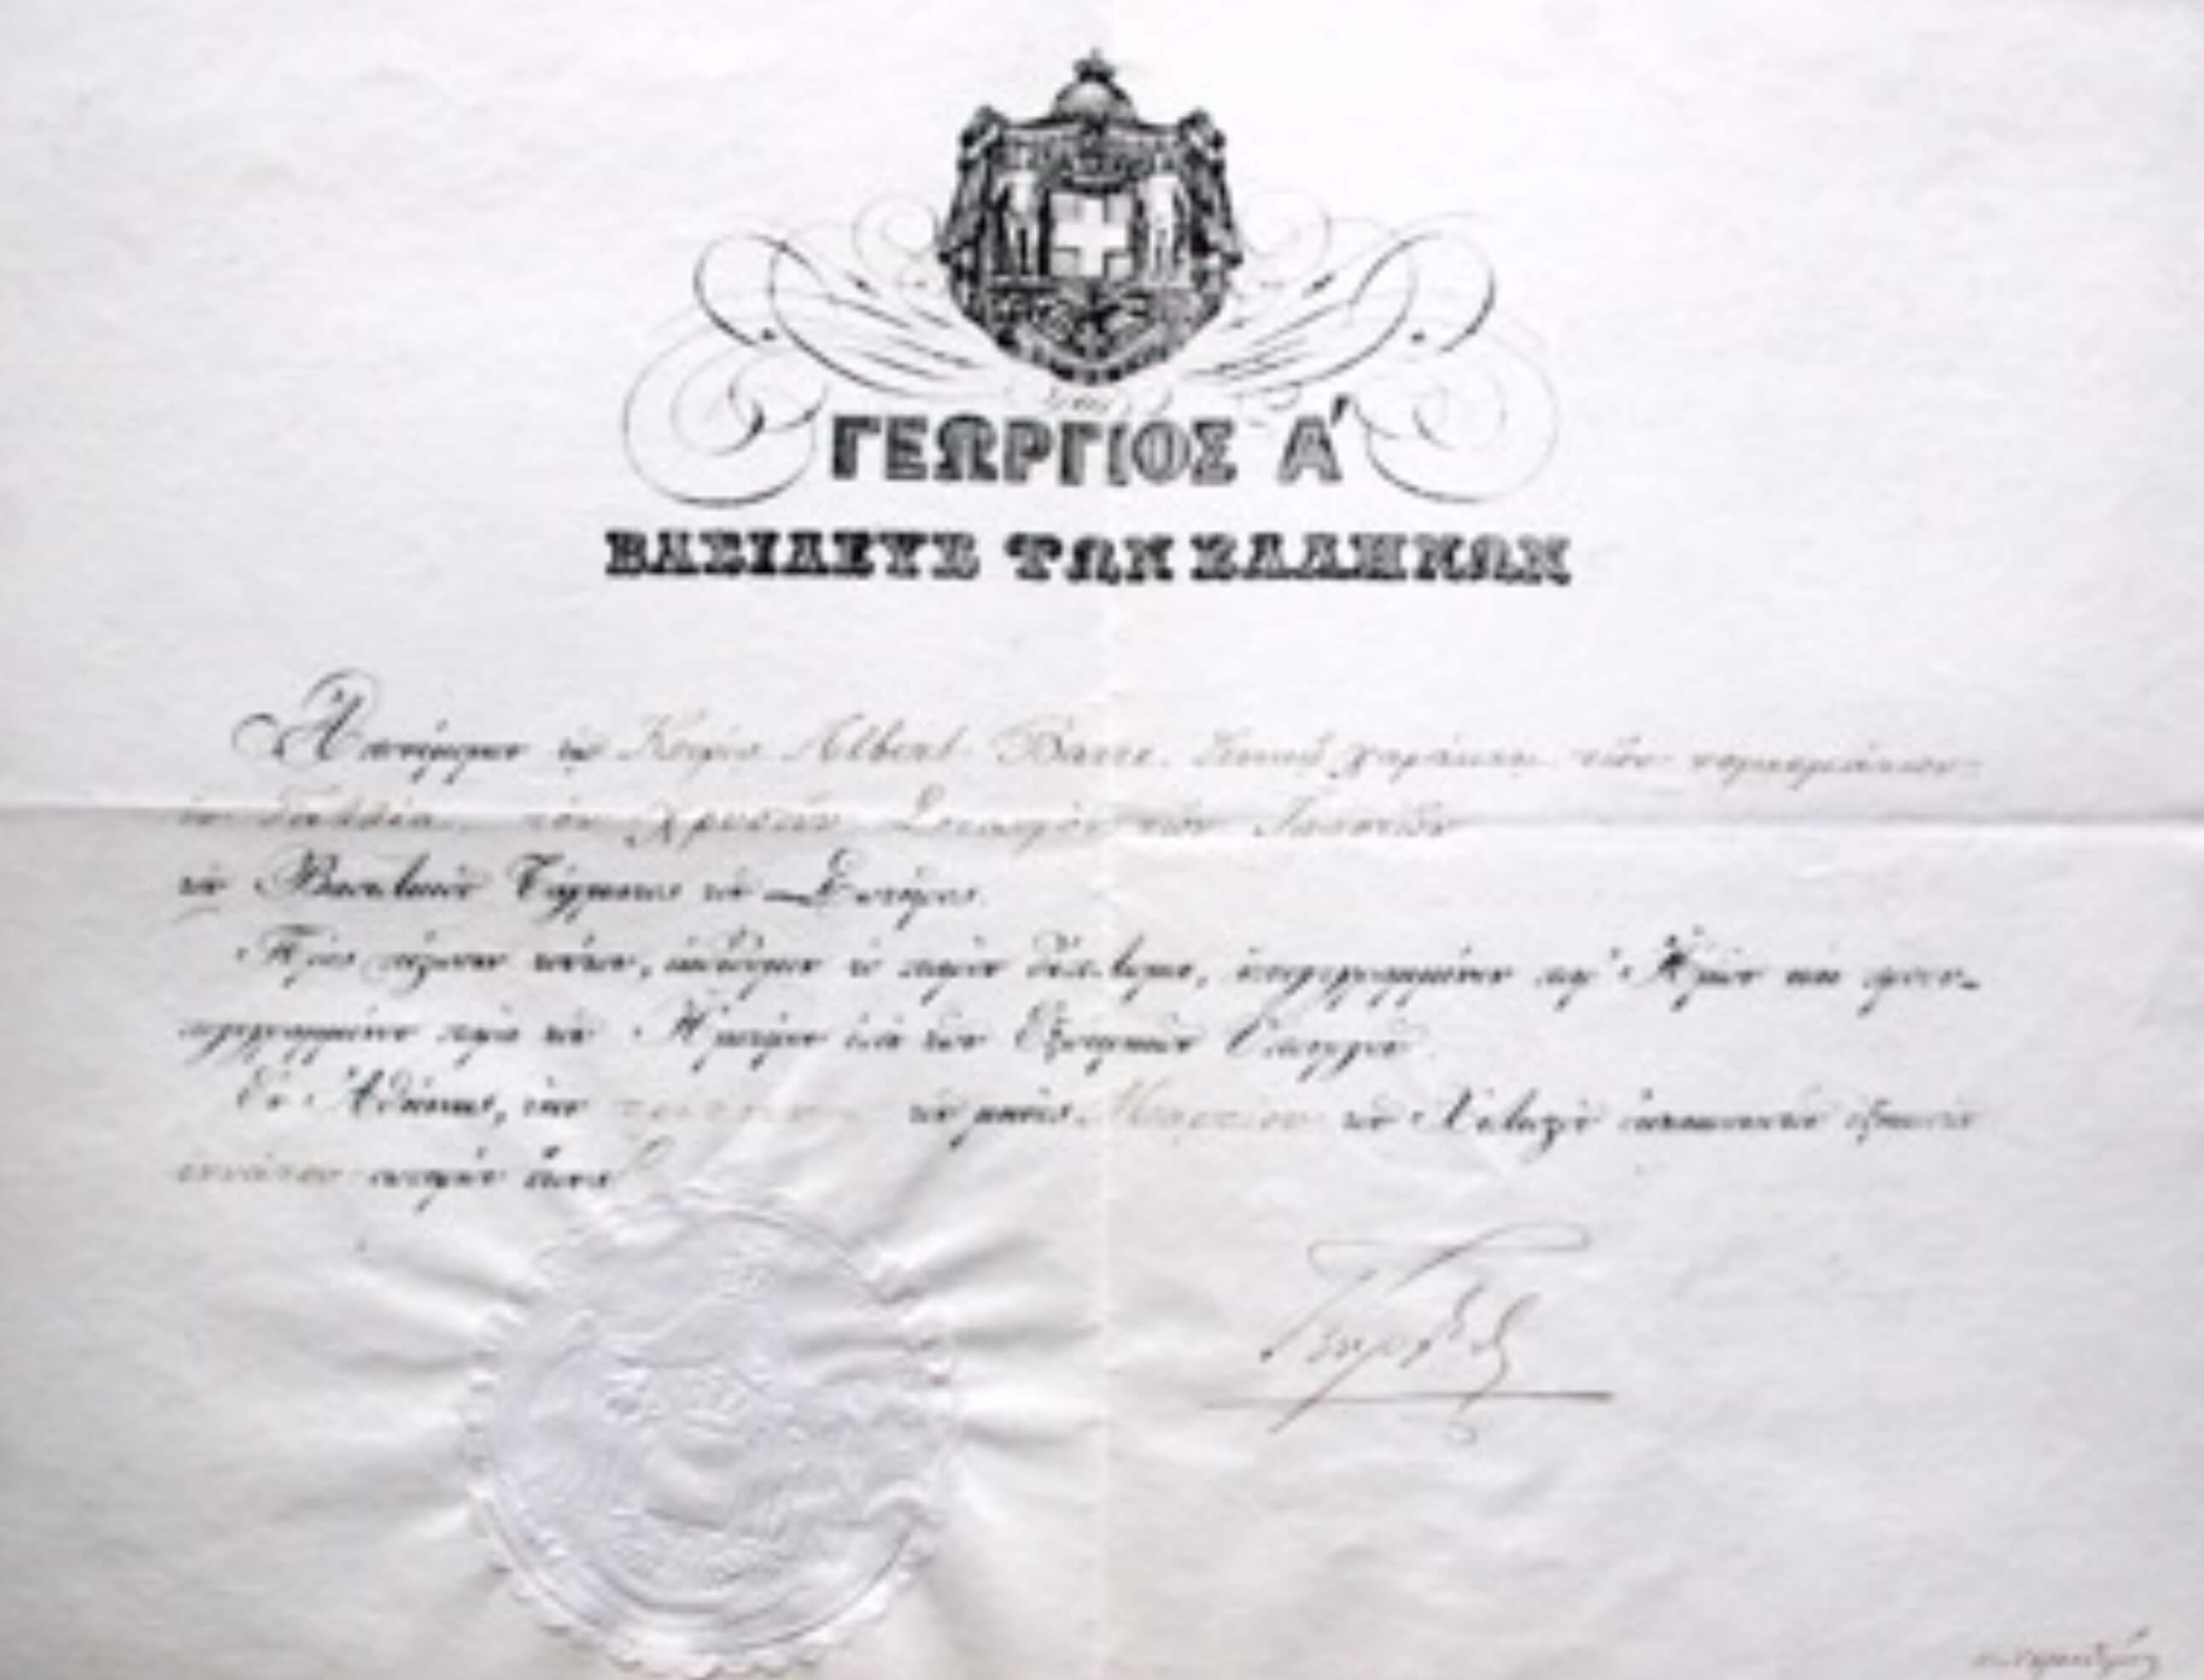 ΓΕΩΡΓΙΟΣ Α'
ΒΑΣΙΛΕΥΣ ΤΩΝ ΕΛΛΗΝΩΝ
Ἀπονέμομεν τῷ Κυρίῳ Albert Barre. Γενικῷ χαράκτῃ τῶν νομισμάτων
ἐν Γαλλίᾳ τὸν Χρυσοῦν Σταυρὸν τῶν Ἱπποτῶν
τοῦ Βασιλικοῦ Τάγματος τοῦ Σωτῆρος.
Πρὸς πίστωσιν τούτου, ἐκδίδομεν τὸ παρὸν δίπλωμα, ὑπογεγραμμένον παρ' Ἡμῶν καὶ προσυ-
πογεγραμμένον παρὰ τοῦ Ἡμετέρου ἐπὶ τῶν Ἐξωτερικῶν Ὑπουργοῦ.
Ἐν Ἀθήναις, τὴν τρίτην τοῦ μηνὸς Μαρτίου τοῦ Χιλιοστοῦ ὀκτακοσιοστοῦ ἑξηκοστοῦ
ἐννάτου σωτηρίου ἔτους
Γεώργιος